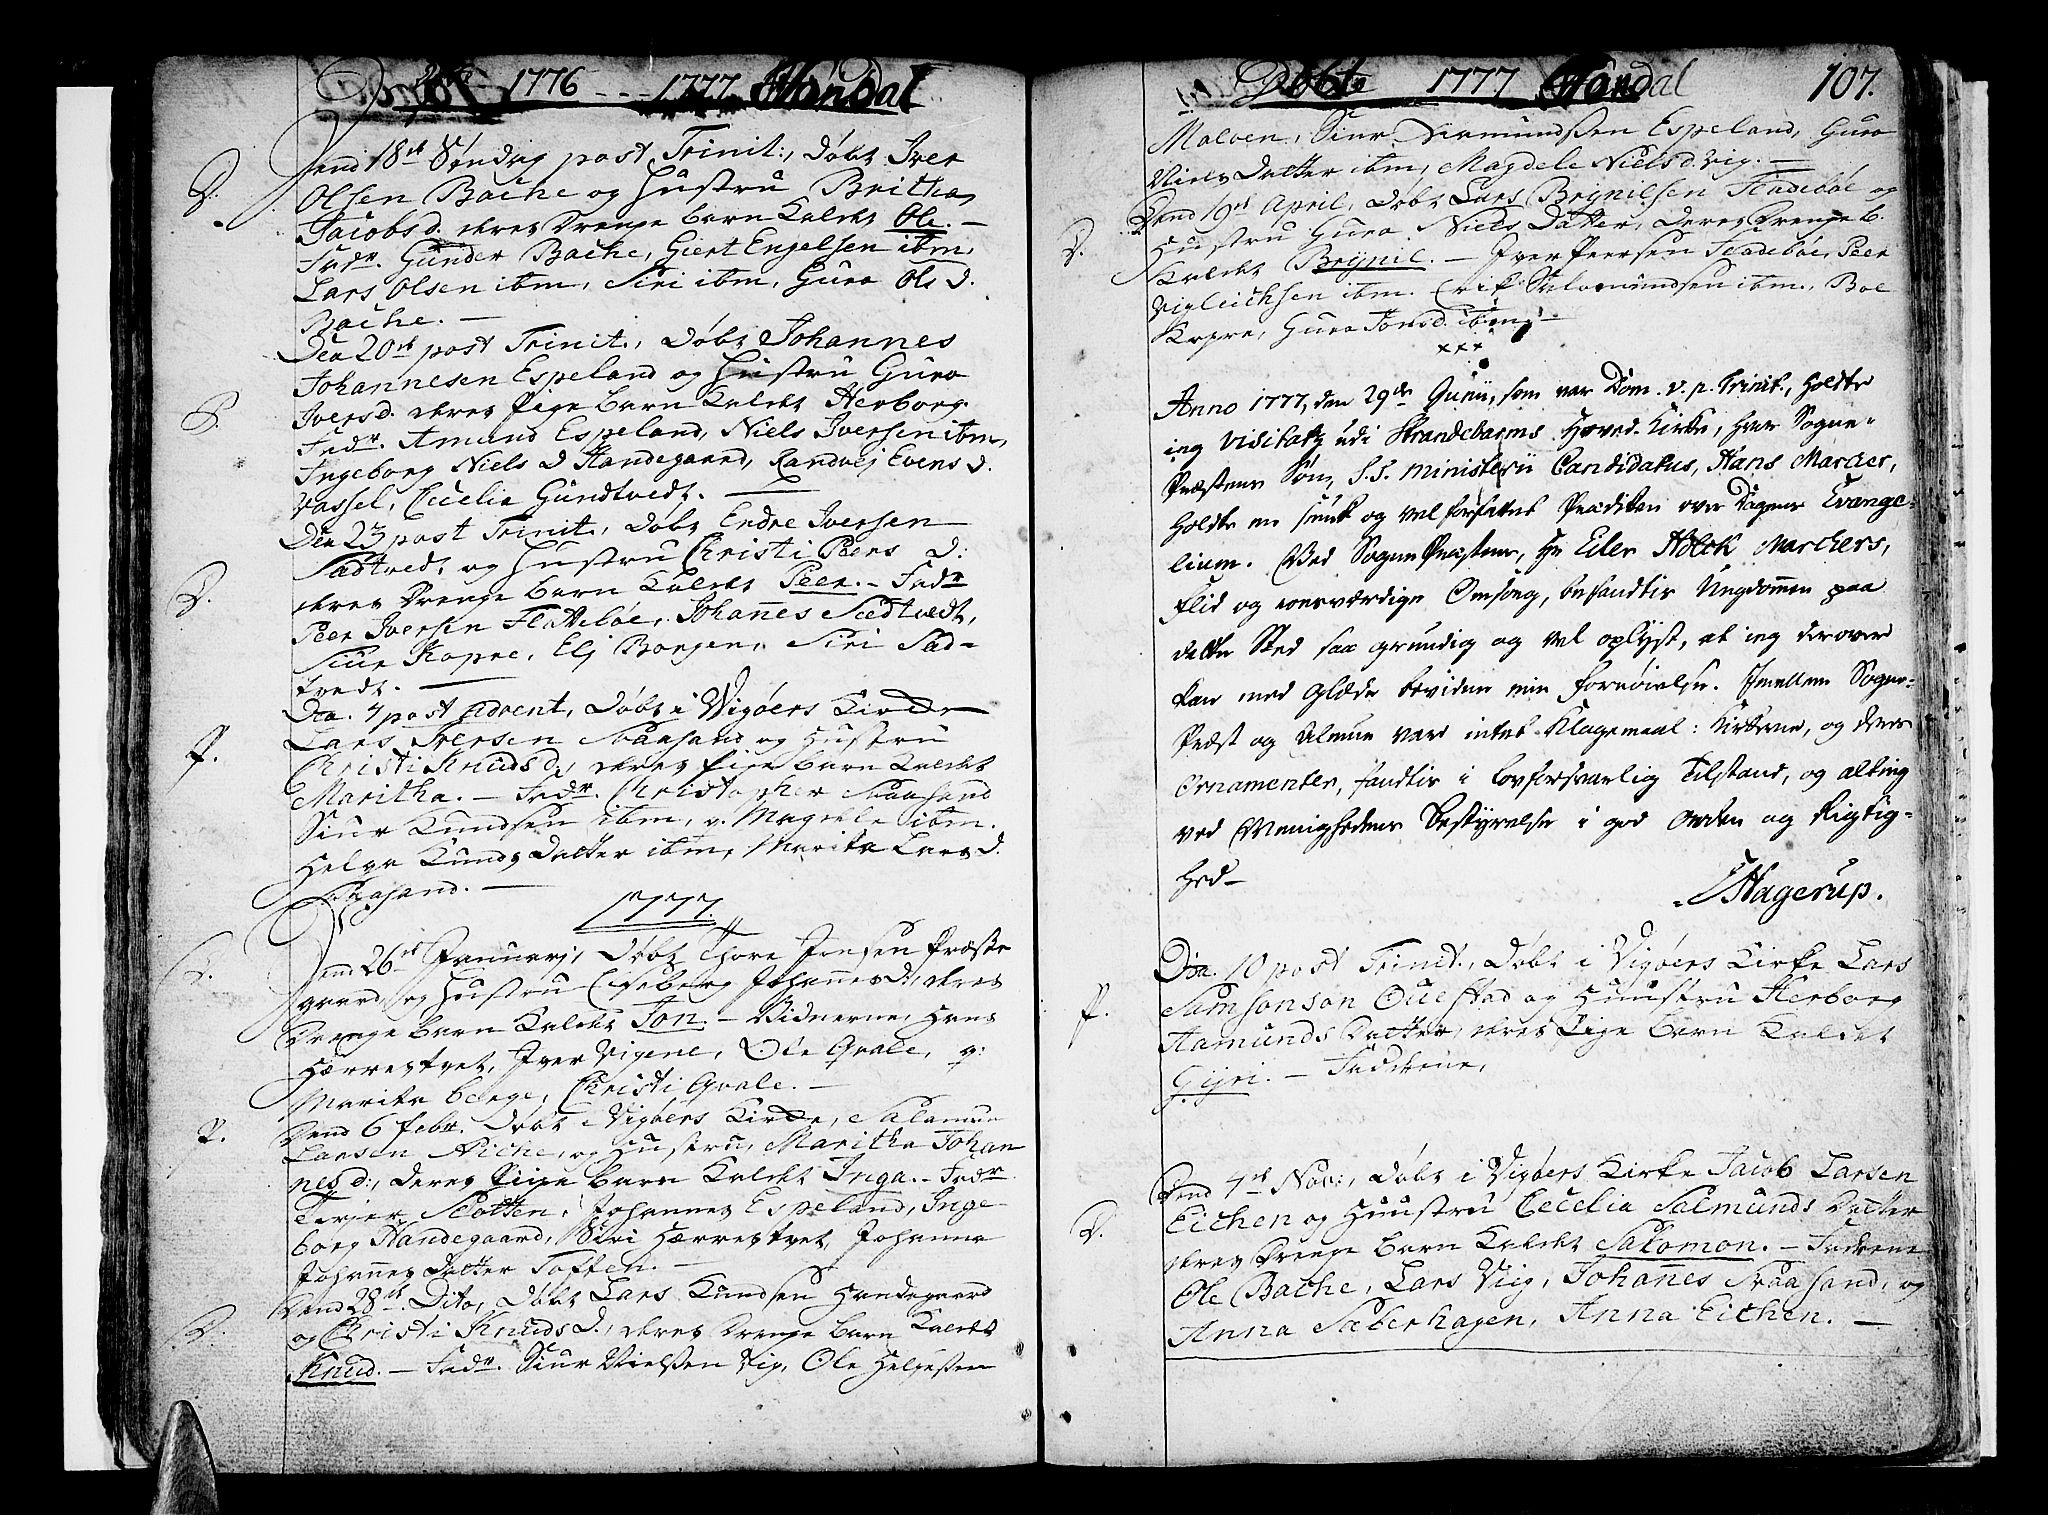 Døbte 1776 --- 1777 Strandal
Dend 18de Søndag post Trinit:, døbt Iver
D.
Olsen Bache og Hustru Britha
Jacobsd. deres Drenge barn kaldet Ole. —
Fadr. Gunder Bache, Giert Engelsen ibm,
Lars Olsen ibm, Siri ibm, Guro Ols D.
Bache. —
Den 20de post Trinit:, døbt Johannes
Johannesen Espeland og Hustru Guro
P.
Iversd. deres Pige barn kaldet Herborg.
Fadr. Amund Espeland, Niels Iversen ibm,
Ingeborg Niels D Handegaard, Randvej Evens d.
Vassel, Cicelia Gundtvedt. —
Den 23 post Trinit, døbt Endre Iversen
Sadtvedt og Hustru Christi Peers D:
D.
deres Drenge barn kaldet Peer. — Fadr
Peer Iversen Fladebøe, Johannes Sadtvedt,
Siur Kopre, Elj Borgen, Siri Sad-
tvedt. —
Dca. 4 post Advent, døbt i Vigøers Kircke
Lars Iversen Skaasand og Hustru
P.
Christi Knudsd., deres Pige barn kaldet
Maritha. — Fadr. Christopher Skaasand
Siur Knudsen ibm, Magdele ibm.
Helga Knuds Datter ibm, Marita Larsd.
Skaasand. —
1777.
Dend 26de Januarj, døbt Thore Jonsen Præste
D.
gaard og Hustru Johannesd., deres
Drenge barn kaldet Jon. — Vidnerne, Hans
Hærrestvet, Iver Vigene, Ole Qvale,
Marita berge, Christi Qvale. —
P.
Dend 6 febr. døbt i Vigøers Kircke, Salamun
Larsen Aiche, og Hustru, Maritha Johan
nesd:, deres Pige barn kaldet Inga. — Fadr
Torjer Slotten, Johannes Espeland, Inge-
borg Handegaard, Siri Hærrestvet, Johanna
Johannes Datter Toften. —
Dend 28de Dito, døbt Lars Knudsen Handegaard
D.
og Christi Knudsd., deres Drenge barn kaldet
Knud. — Fadr. Siur Nielsen Vig, Ole Helgesen
Døbte 1777 Strandal 107.
Malven, Siur Amundsen Espeland, Guro
Niels Datter ibm, Magdele Nielsd. Vig. —
Dend 19de April, døbt Lars Brynilsen Fladebøe og
D.
Hustru Guro Niels Datter, deres Drenge b.
kaldet Brynil. — Iver Peersen Fladebøe, Peer
Vigleichsen ibm. Erik Salomundsen ibm, Boe
Kopre, Guro Jonsd. ibm; —
xxx
Anno 1777, den 29de Junii, som var Dom. v. p. Trinit., holdte
jeg Visitatz udi Strandebarms Hoved-Kirke, hvor Sogne-
Præstens Søn, S.S. Ministerii Candidatus, Hans Marcher,
holdte en smuk og vel forfattet Prædiken over Dagens Evange-
lium. Ved Sogne Præstens, Hr Eiler Holck Marchers,
flid og roesværdige Omsorg, befandtes Ungdommen paa
dette Sted saa grundig og vel oplyst, at jeg derover
kan med Glæde bevidne min fornøielse. Imellem Sogne-
Præst og Almue vare intet Klagemaal: Kirkerne, og deres
Ornamenter, fandtes i lovforsvarlig Tilstand, og alting
ved Menighedens bestyrelse i god Orden og Rigtig-
hed —
Hagerup.
Dca. 10 post Trinit., døbt i Vigøers Kirke Lars
P.
Samsonson Ouestad og Huustru Herborg
Aamunds Datter, deres Pige barn kaldet
Gijri. — Fadderne,
Dend 4de Nov:, døbt i Vigøers Kirke Jacob Larsen
D.
Eichen og Huustru Cecelia Salmunds Datter
deres Drenge barn kaldet Salomon. — Fadderne
Ole Bache, Lars Viig, Johannes Skaasand, og
Anna Saberhagen, Anna Eichen. —